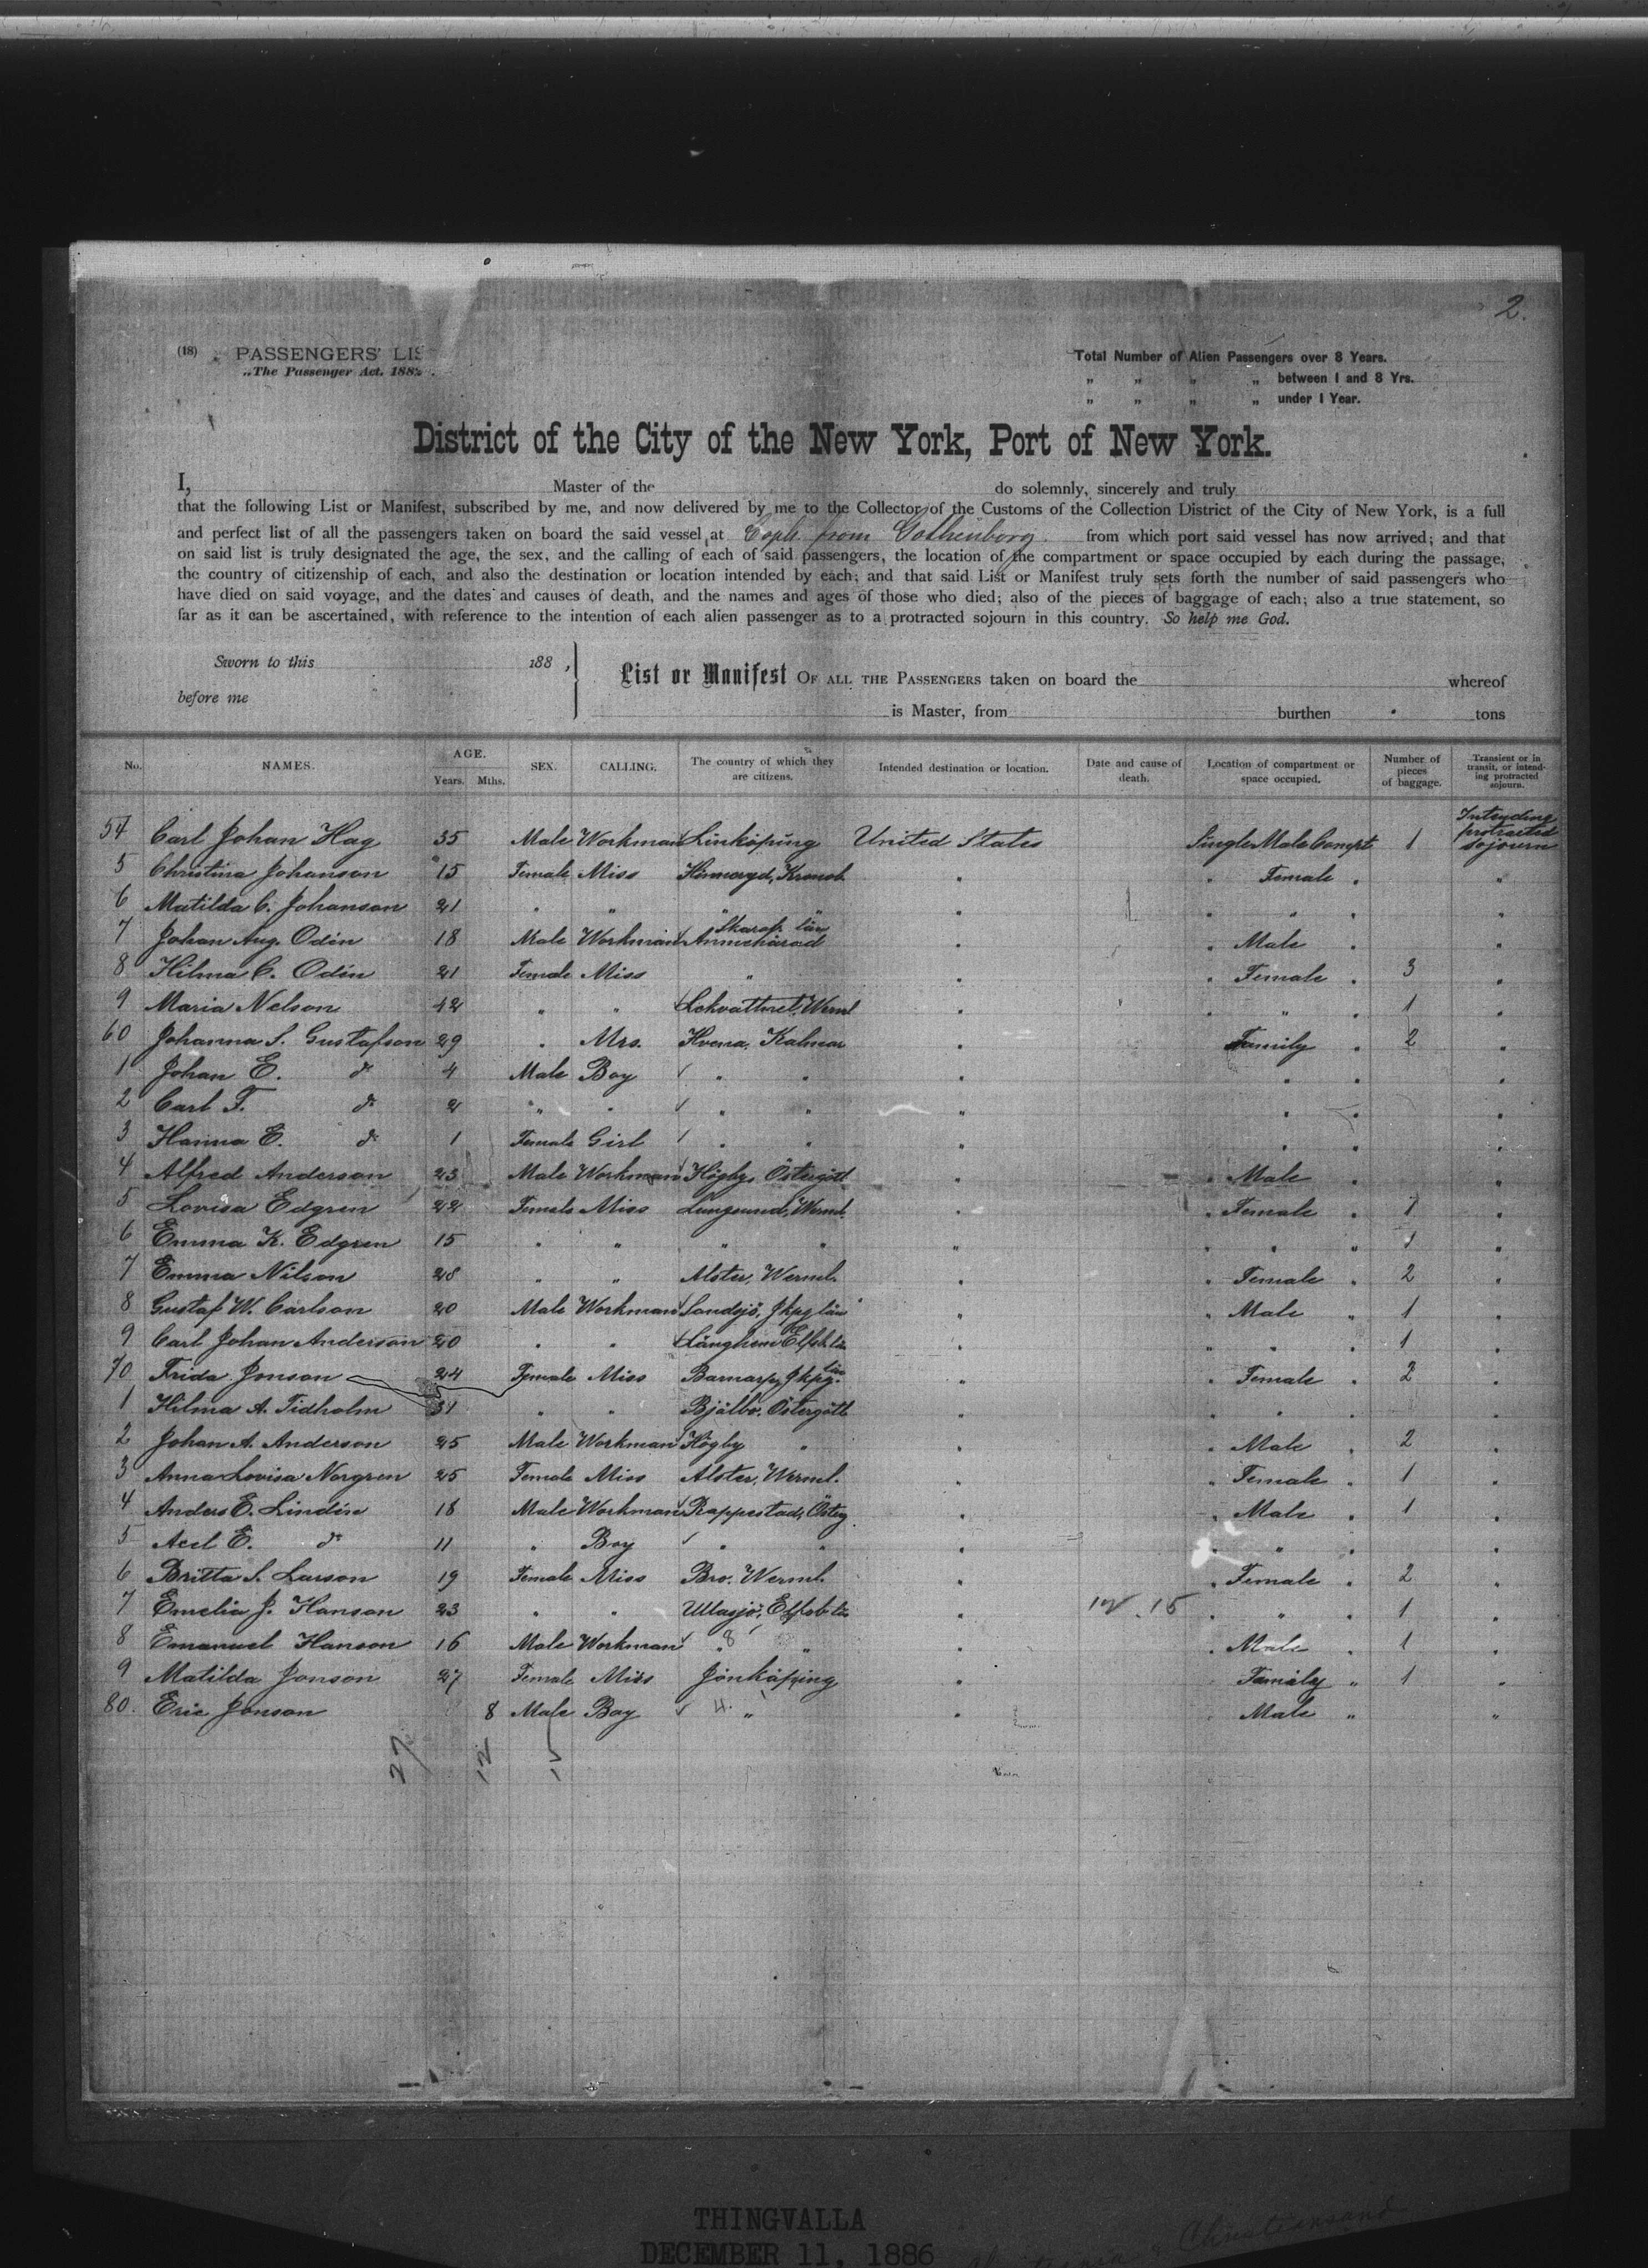 2.
(18) PASSENGERS' LIS
„The Passenger Act. 188
Total Number of Alien Passengers over 8 Years.
„ „ „ „ between 1 and 8 Yrs.
„ „ „ „ under 1 Year.
District of the City of the New York, Port of New York.
I, Master of the do solemnly, sincerely and truly
that the following List or Manifest, subscribed by me, and now delivered by me to the Collector of the Customs of the Collection District of the City of New York, is a full
and perfect list of all the passengers taken on board the said vessel at Coph. from Gothenborg from which port said vessel has now arrived; and that
on said list is truly designated the age, the sex, and the calling of each of said passengers, the location of the compartment or space occupied by each during the passage,
the country of citizenship of each, and also the destination or location intended by each; and that said List or Manifest truly sets forth the number of said passengers who
have died on said voyage, and the dates and causes of death, and the names and ages of those who died; also of the pieces of baggage of each; also a true statement, so
far as it can be ascertained, with reference to the intention of each alien passenger as to a protracted sojourn in this country. So help me God.
Sworn to this 188 ,
before me
List or Manifest OF ALL THE PASSENGERS taken on board the whereof
is Master, from burthen tons
No. NAMES. AGE. Years. Mths. SEX. CALLING. The country of which they are citizens. Intended destination or location. Date and cause of death. Location of compartment or space occupied. Number of pieces of baggage. Transient or in transit, or intending protracted sojourn.
54 Carl Johan Hag 35 Male Workman Linköping United States Single Male Compt. 1 Intending protracted sojourn
5 Christina Johanson 15 Female Miss Hinneryd, Kronob. " " Female " "
6 Matilda C. Johanson 21 " " " " " " " " "
7 Johan Aug. Odén 18 Male Workman Skarab. län " " Male " "
8 Hilma C. Odén 21 Female Miss " " " Female " 3 "
9 Maria Nelson 42 " " Lekvattnet, Werml " " " " 1 "
60 Johanna S. Gustafson 29 " Mrs. Hvena, Kalmar " Family " 2 "
1 Johan E. do 4 Male Boy " " " " " "
2 Carl F. do 2 " " " " " " " "
3 Hanna E. do 1 Female Girl " " " " " "
4 Alfred Anderson 23 Male Workman Högby, Östergötl " " Male " "
5 Lovisa Edgren 22 Female Miss Lungsund, Werml. " " Female " 1 "
6 Emma K. Edgren 15 " " " " " " " " 1 "
7 Emma Nilson 28 " " Alster, Werml. " " Female " 2 "
8 Gustaf W. Carlson 20 Male Workman Sandsjö, Jkpg län " " Male " 1 "
9 Carl Johan Anderson 20 " " Länghem Elfsb. län " " " " 1 "
70 Frida Jonson 24 Female Miss Barnarp, Jkpg. län " " Female " 2 "
1 Hilma A. Tidholm 31 " " Bjälbo, Östergötl " " " " "
2 Johan A. Anderson 25 Male Workman Högby " " " Male " 2 "
3 Anna Lovisa Norgren 25 Female Miss Alster, Werml. " " Female " 1 "
4 Anders E. Lindén 18 Male Workman Rappestad, Österg " " Male " 1 "
5 Axel E. do 11 " Boy " " " " " " "
6 Britta S. Larson 19 Female Miss Bro, Werml. " " Female " 2 "
7 Emelia J. Hanson 23 " " Ullasjö, Elfsb. län " 12.15 " " " 1 "
8 Emanuel Hanson 16 Male Workman " 8 " " " Male " 1 "
9 Matilda Jonson 27 Female Miss Jönköping " Family " 1 "
80. Eric Jonson 8 Male Boy 4. " " Male " "
27 12 15
THINGVALLA
DECEMBER 11, 1886
Christiansand